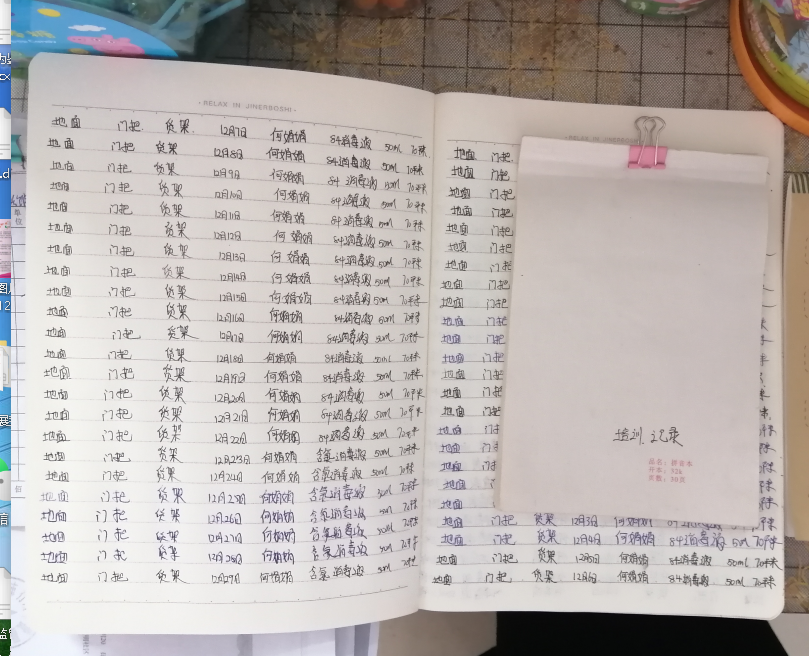 RELAX IN JINERBOSHI
地面 门把 货架 12月7日 何娟娟 84消毒液 50ml 70味
地面 门把 货架 12月8日 何娟娟 84消毒液 50ml
地面 门把 货架 12月9日 何娟娟 84消毒液 50ml
地面 门把 货架 12月10日 何娟娟 84消毒液 50ml
地面 门把 货架 12月11日 何娟娟 84消毒液 50ml
地面 门把 货架 12月12日 何娟娟 84消毒液 50ml
地面 门把 货架 12月13日 何娟娟 84消毒液 50ml
地面 门把 货架 12月14日 何娟娟 84消毒液 50ml
地面 门把 货架 12月15日 何娟娟 84消毒液 50ml
地面 门把 货架 12月16日 何娟娟 84消毒液 50ml
地面 门把 货架 12月17日 何娟娟 84消毒液 50ml
地面 门把 货架 12月18日 何娟娟 84消毒液 50ml
地面 门把 货架 12月19日 何娟娟 84消毒液 50ml
地面 门把 货架 12月20日 何娟娟 84消毒液 50ml
地面 门把 货架 12月21日 何娟娟 84消毒液 50ml
地面 门把 货架 12月22日 何娟娟 84消毒液 50ml
地面 门把 货架 12月23日 何娟娟 含氯消毒液 50ml
地面 门把 货架 12月24日 何娟娟 含氯消毒液 50ml
地面 门把 货架 12月25日 何娟娟 含氯消毒液 50ml
地面 门把 货架 12月26日 何娟娟 含氯消毒液 50ml
地面 门把 货架 12月27日 何娟娟 含氯消毒液 50ml
地面 门把 货架 12月28日 何娟娟 含氯消毒液 50ml
地面 门把 货架 12月29日 何娟娟 含氯消毒液 50ml
地面 门把
地面 门把
地面 门把
地面 门把
地面 门把
地面 门把
地面 门把
地面 门把
地面 门把
地面 门把
地面 门把
地面 门把
地面 门把
地面 门把
地面 门把
地面 门把
地面 门把
地面
地面
地面 门把 货架 12月3日 何娟娟 84消毒液 50ml
地面 门把 货架 12月4日 何娟娟 84消毒液 50ml
地面 门把 货架 12月5日 何娟娟 84消毒液 50ml
地面 门把 货架 12月6日 何娟娟 84消毒液 50ml
培训记录
品名：拼音本
开本：32k
页数：30页